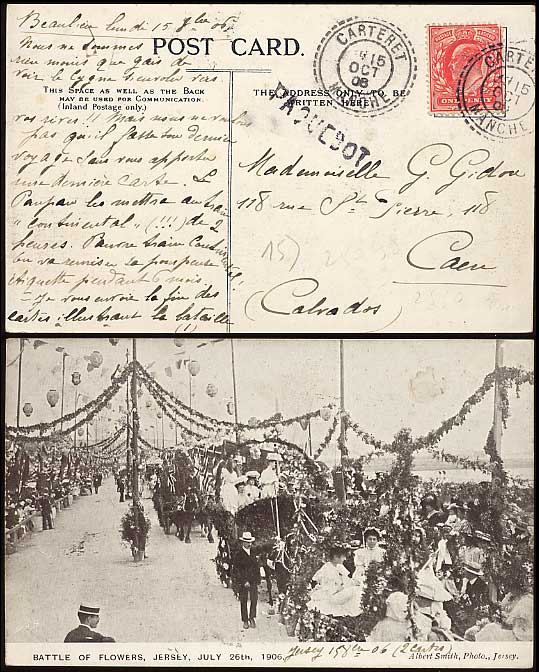 Beaulieu lundi 15 8bre 06
Nous ne sommes
rien moins que gais de
voir le Cygne s'envoler vers
POST CARD.
THIS SPACE AS WELL AS THE BACK
MAY BE USED FOR COMMUNICATION.
(Inland Postage only.)
THE ADDRESS ONLY TO BE
WRITTEN HERE.
CARTERET
15
OCT
06
MANCHE
CARTERET
15
OCT
MANCHE
POSTAGE
ONE PENNY
PAQUEBOT
vos rives !! Mais nous ne voulons
pas qu'il fasse son dernier
voyage sans vous apporter
une dernière carte. Le
mettra au train
"continental" (!!!) de 2
heures. Pauvre train
va remiser sa pompeuse
étiquette pendant 6 mois.
- Je vous envoie la fin des
cartes illustrant la bataille
(1)
Mademoiselle G. Gidon
118 rue St Pierre, 118
Caen
(Calvados)
15)
BATTLE OF FLOWERS, JERSEY, JULY 26th, 1906.
Jersey 15 8bre 06 (2 cartes)
Albert Smith, Photo., Jersey.